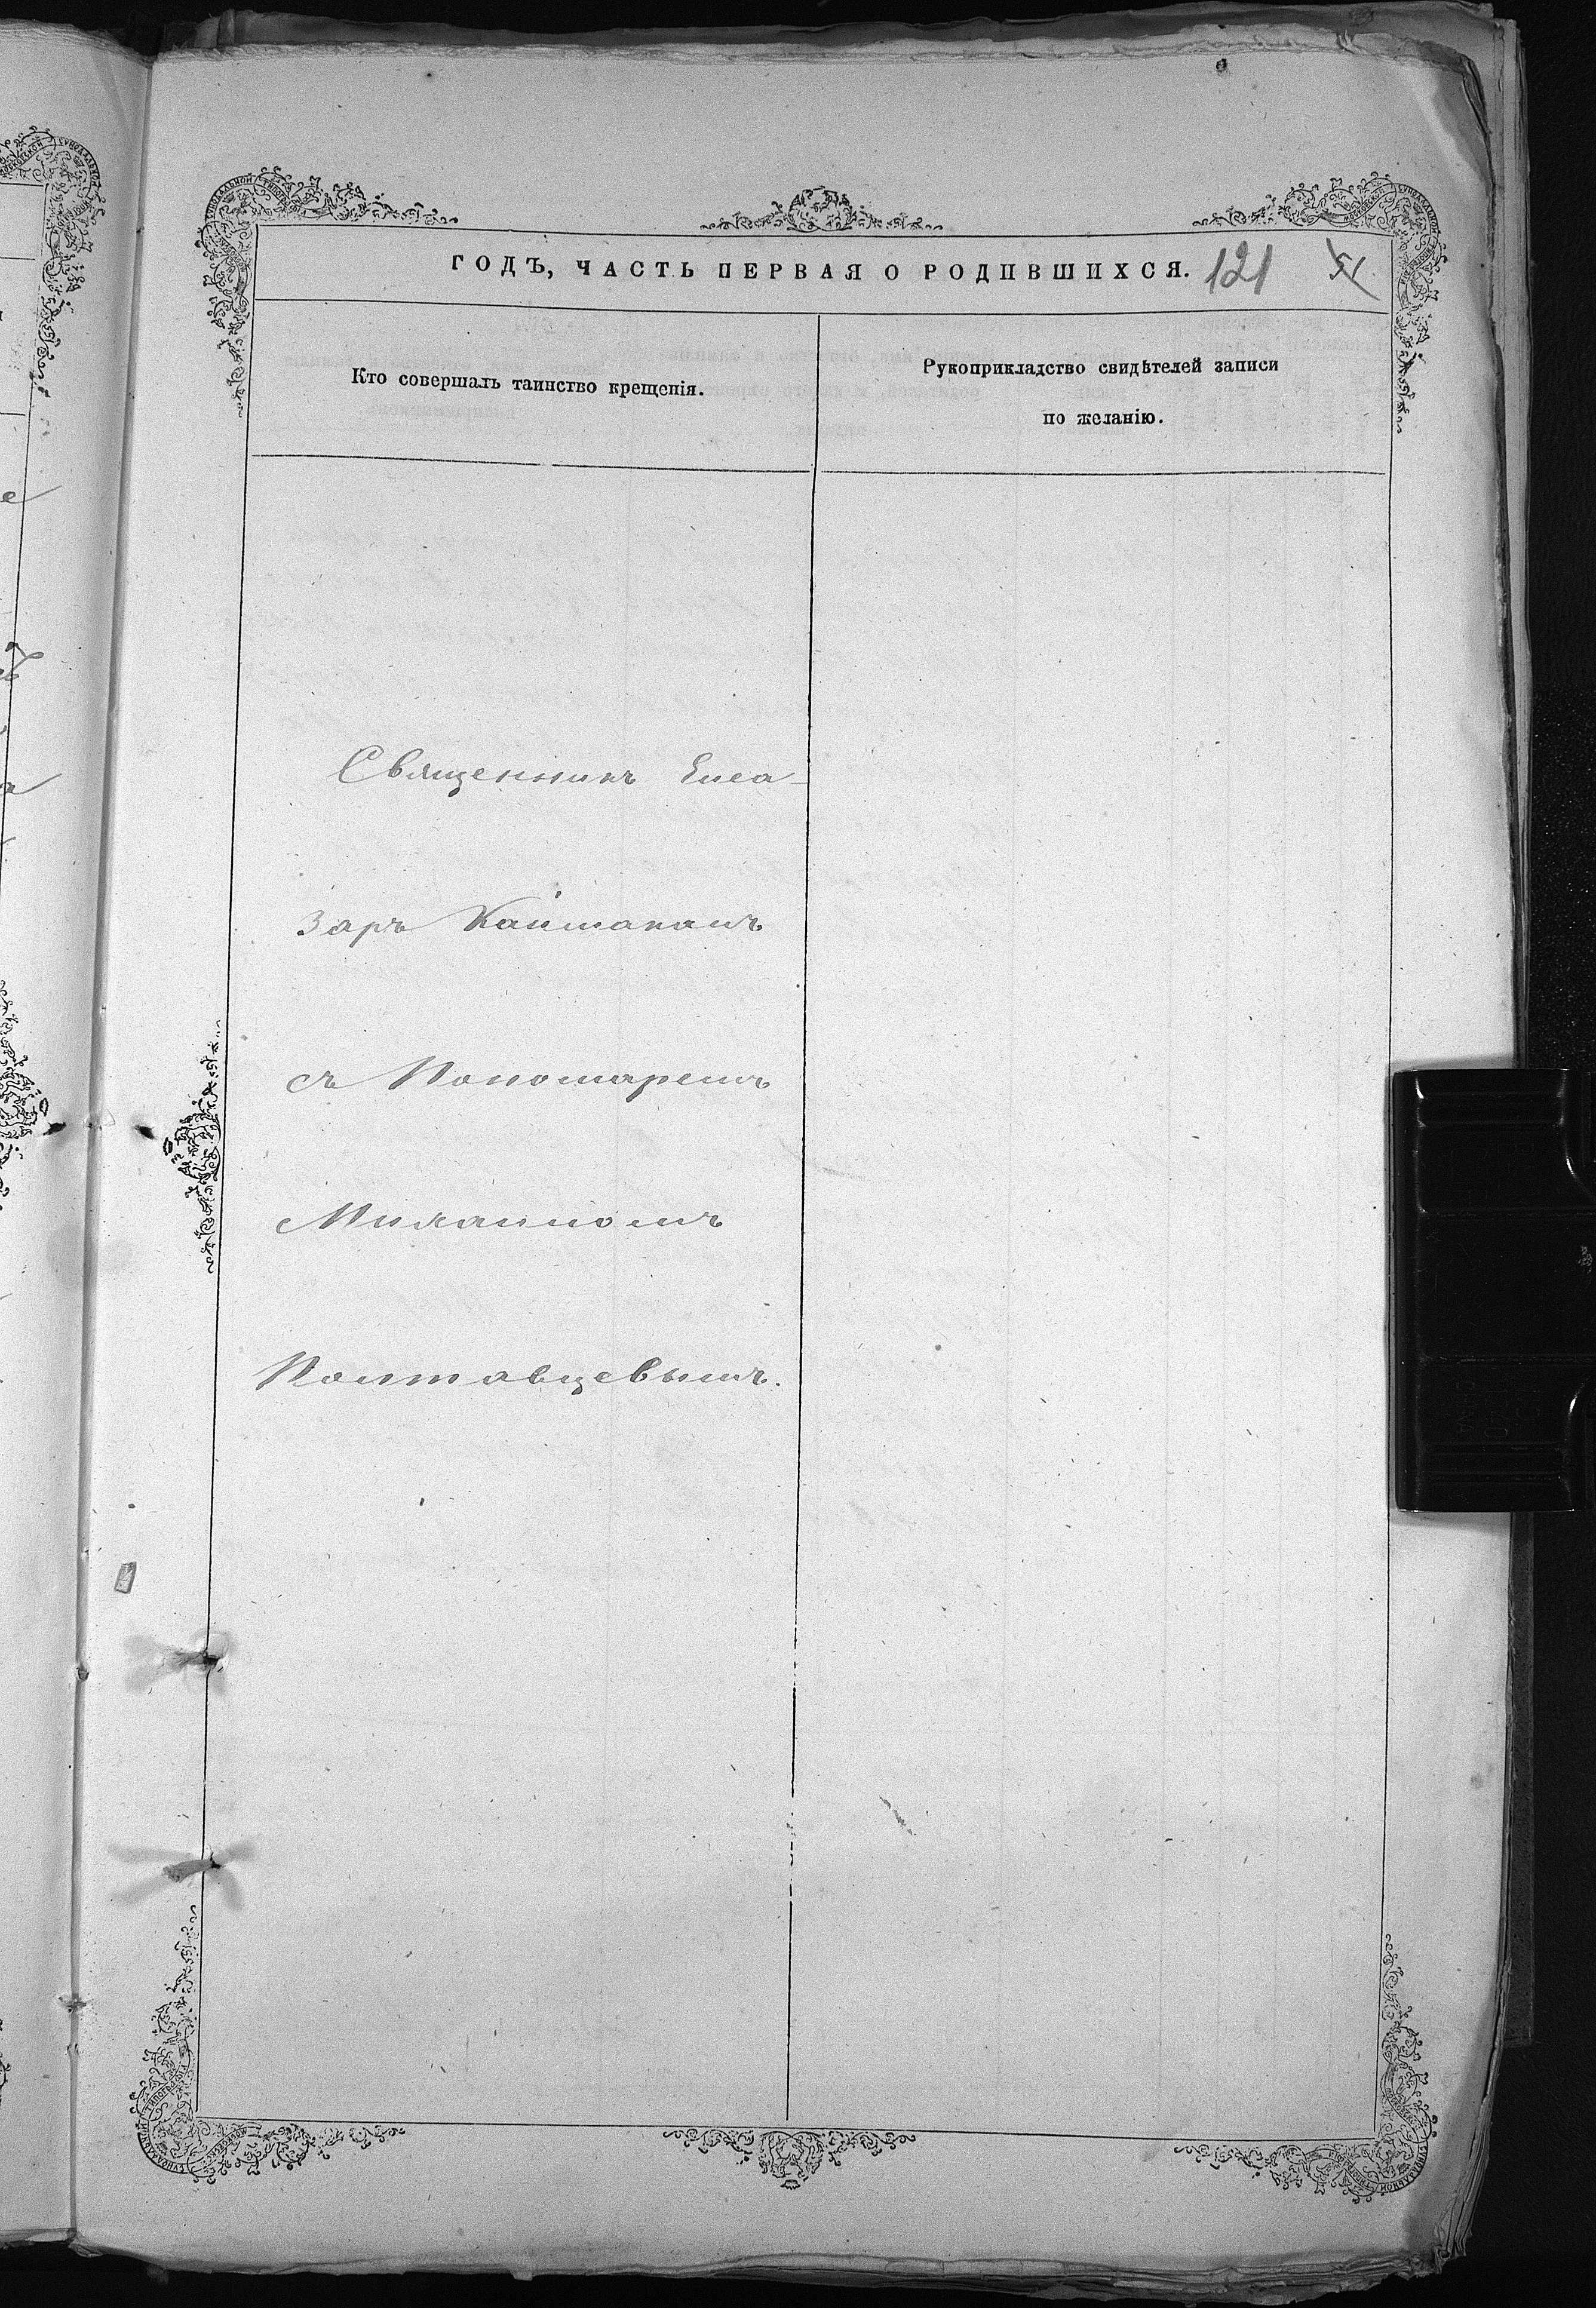 ГОДЪ, ЧАСТЬ ПЕРВАЯ О РОДИВШИХСЯ. 121
Кто совершалъ таинство крещенія.
Рукоприкладство свидѣтелей записи
по желанію.
Священникъ Елеа-
заръ Кайтаканъ
съ Пономаремъ
Михаиломъ
Полтавцевымъ.